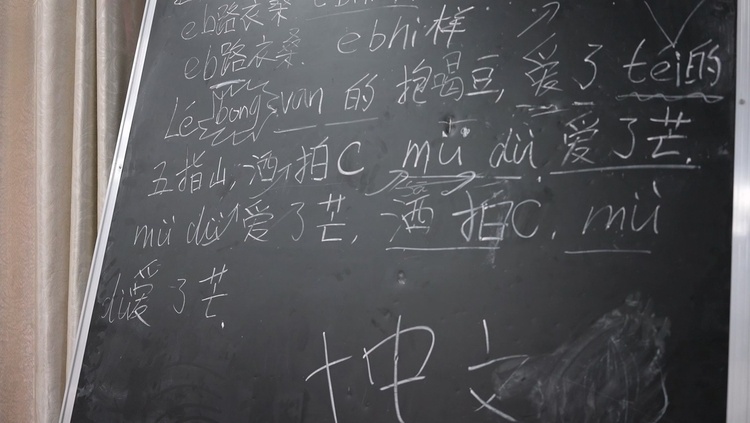 eb路衣桑
eb路衣桑. ebhi样
Lé bong svan 的 抱喝豆, 爱了 tei的
五指山, 酒个拍C mü dü. 爱了芒.
mü dü 爱了芒, 酒拍C. mü
dü爱了芒.